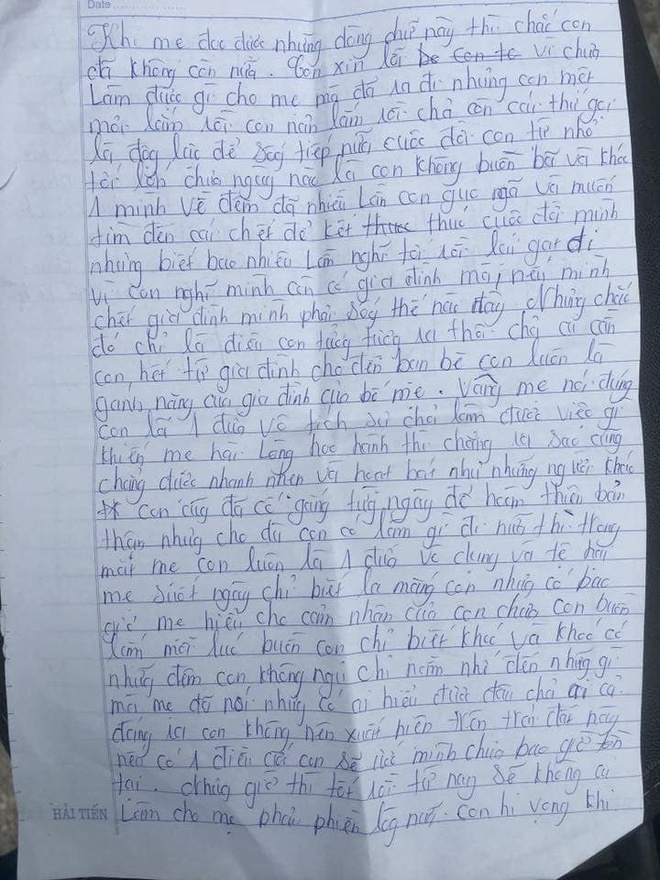 Date
Khi mẹ đọc được những dòng chữ này thì chắc con
đã không còn nữa. Con xin lỗi be con te vì chưa
Làm được gì cho mẹ mà đã ra đi nhưng con mệt
mỏi lắm rồi con nản lắm rồi chả còn cái thứ gọi
là động lực để sống tiếp nữa cuộc đời con từ nhỏ
tới lớn chưa ngày nào là con không buồn bã và khóc
1 mình về đêm đã nhiều lần con gục ngã và muốn
tìm đến cái chết để kết thuc thúc cuộc đời mình
nhưng biết bao nhiêu lần nghĩ tới rồi lại gạt đi
vì con nghĩ mình còn có gia đình mà, nếu mình
chết gia đình mình phải sống thế nào đây. Nhưng chắc
đó chỉ là điều con tưởng tượng ra thôi chả ai cần
con, hết từ gia đình cho đến bạn bè con luôn là
gánh nặng của gia đình của bố mẹ. Vâng mẹ nói đúng
con là 1 đứa vô tích sự chả làm được việc gì
khiến mẹ hài lòng học hành thì chẳng ra sao cũng
chẳng được nhanh nhẹn và hoạt bát như những người khác
con cũng đã cố gắng từng ngày để hoàn thiện bản
thân nhưng cho dù con có làm gì đi nữa thì trong
mắt mẹ con luôn là 1 đứa vô dụng và tệ hại
mẹ suốt ngày chỉ biết la mắng con nhưng có bao
giờ mẹ hiểu cho cảm nhận của con chưa con buồn
lắm mỗi lúc buồn con chỉ biết khóc và khóc có
những đêm con không ngủ chỉ nằm nhớ đến những gì
mà mẹ đã nói nhưng có ai hiểu được đâu chả ai cả.
đáng ra con không nên xuất hiện trên trái đất này
nếu có 1 điều ước con sẽ ước mình chưa bao giờ tồn
tại. Nhưng giờ thì tốt rồi từ nay sẽ không ai
Làm cho mẹ phải phiền lòng nữa. Con hi vọng khi
HẢI TIẾN